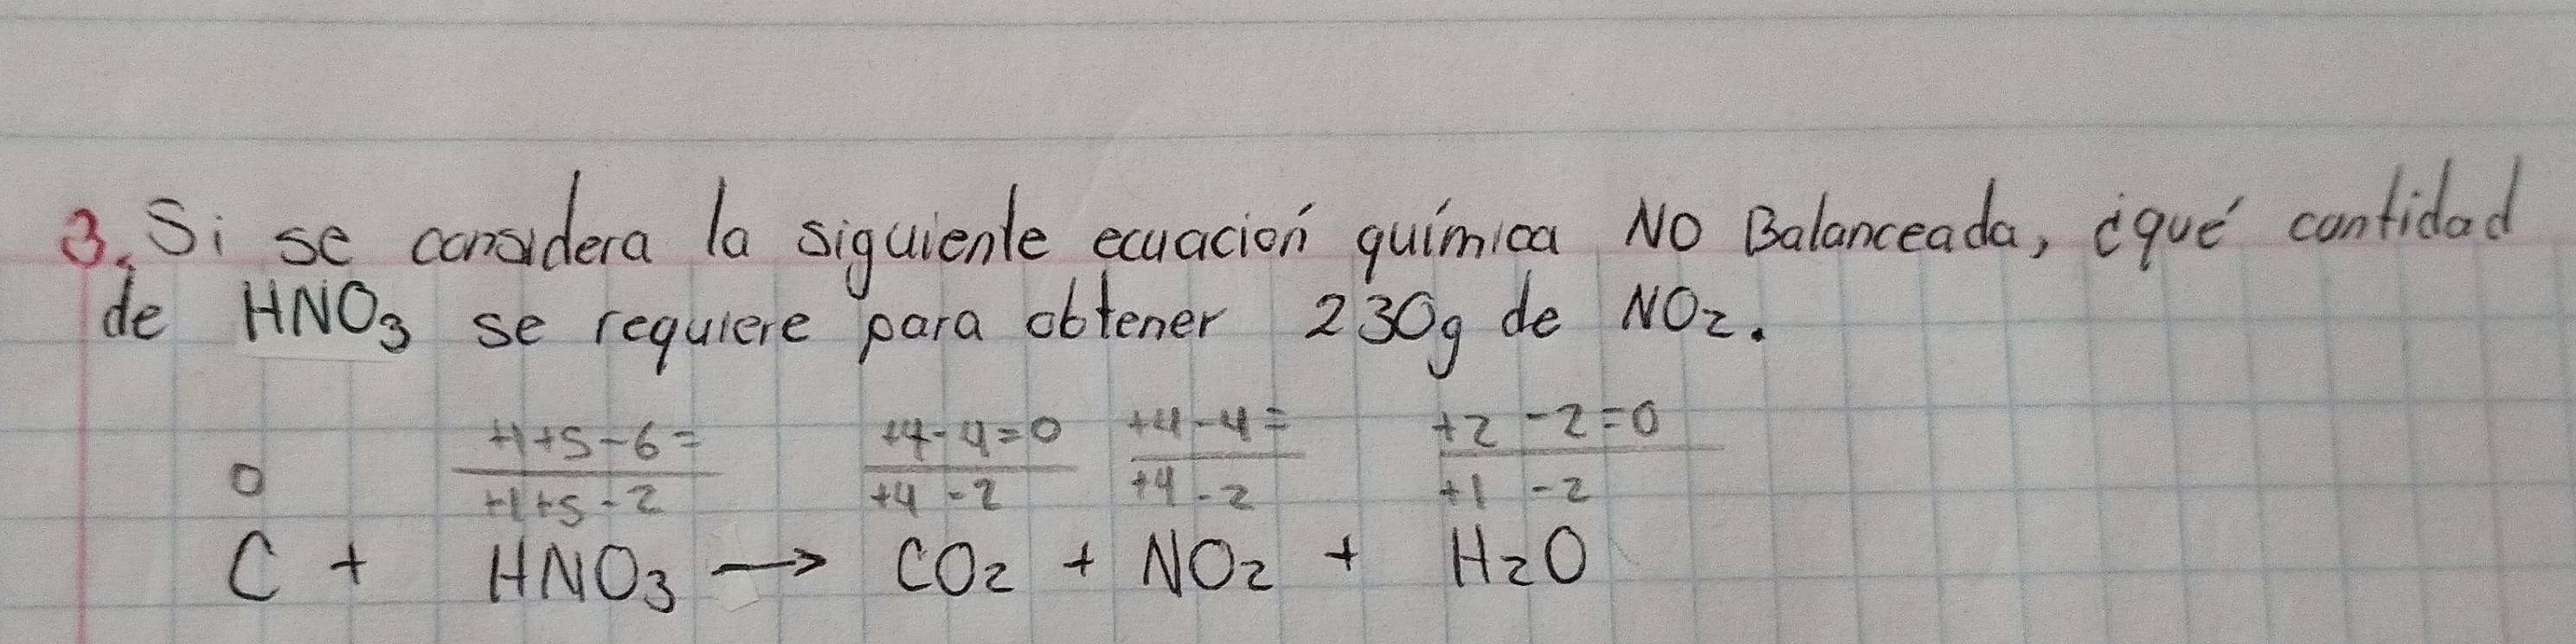 3. Si se considera la siguiente ecuación química NO Balanceada, ¿qué cantidad
de HNO₃ se requiere para obtener 230g de NO₂.
+1+5-6= +4-4=0 +4-4= +2 -2=0
0 +1+5-2 +4 -2 +4 -2 +1 -2
C + HNO₃ → CO₂ + NO₂ + H₂O